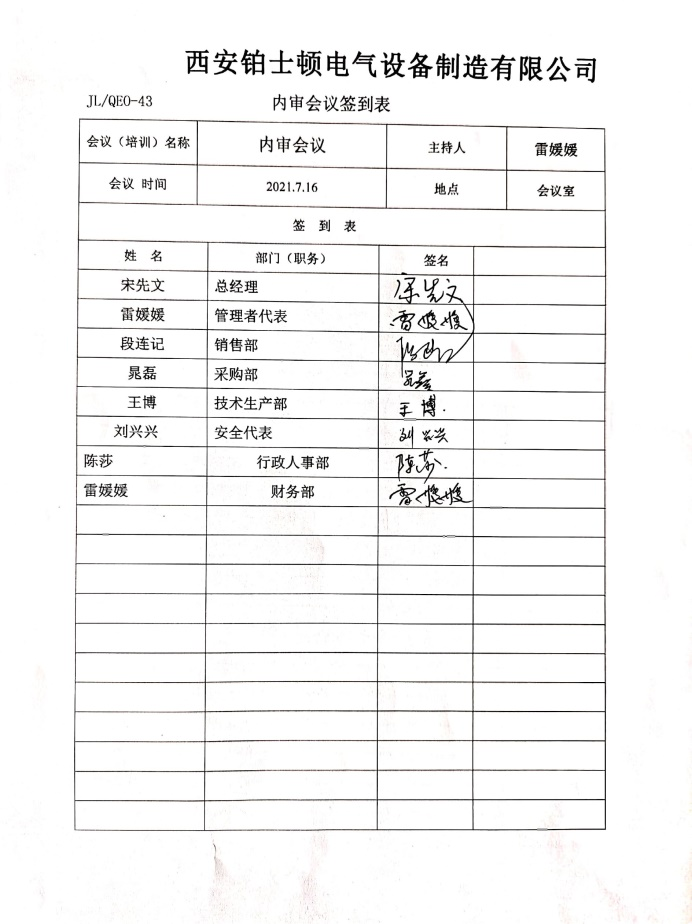 西安铂士顿电气设备制造有限公司
JL/QEO-43 内审会议签到表
会议（培训）名称 内审会议 主持人 雷媛媛
会议 时间 2021.7.16 地点 会议室
签 到 表
姓 名 部门（职务） 签名
宋先文 总经理 宋先文
雷媛媛 管理者代表 雷媛媛
段连记 销售部
晁磊 采购部 晁磊
王博 技术生产部 王博.
刘兴兴 安全代表 刘兴兴
陈莎 行政人事部 陈莎.
雷媛媛 财务部 雷媛媛